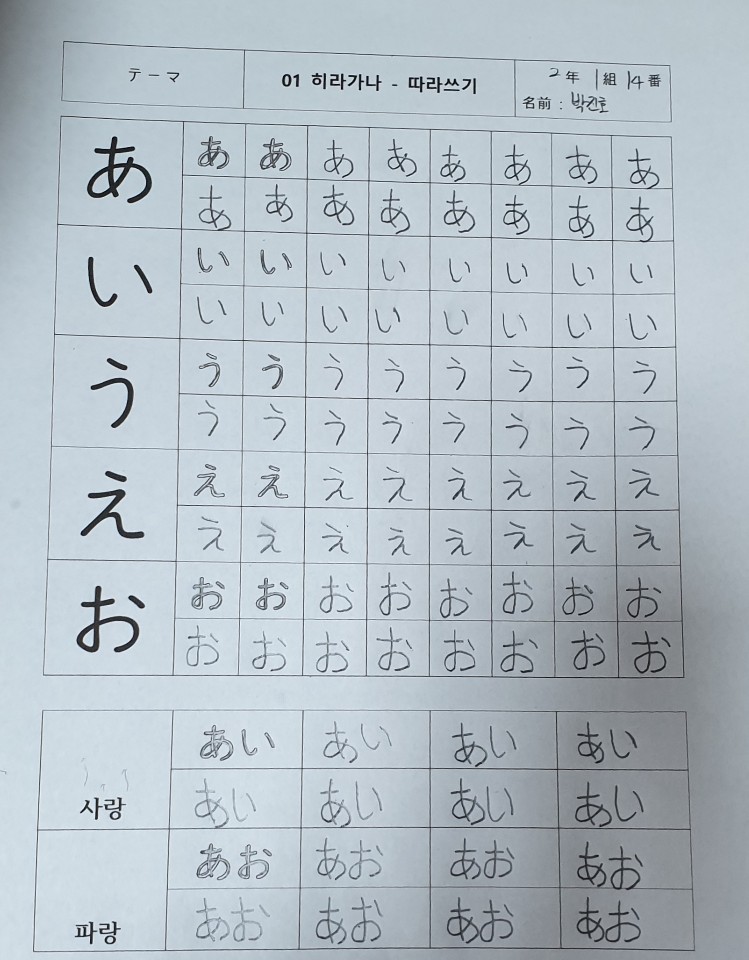 テーマ 01 히라가나 - 따라쓰기 2年 1組 14番
名前 : 박진호
あ あ あ あ あ あ あ あ あ
あ あ あ あ あ あ あ あ
い い い い い い い い い
い い い い い い い い
う う う う う う う う う
う う う う う う う う
え え え え え え え え え
え え え え え え え え
お お お お お お お お お
お お お お お お お お
あい あい あい あい
사랑 あい あい あい あい
あお あお あお あお
파랑 あお あお あお あお